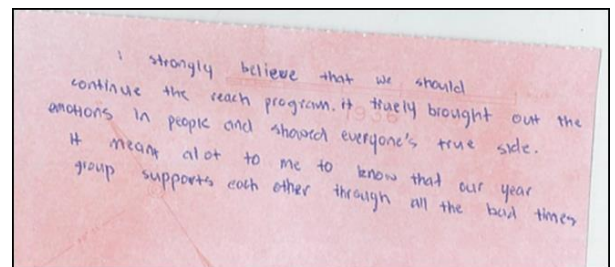 i strongly believe that we should
continue the reach program. It truely brought out the
emotions in people and showed everyone's true side.
It meant alot to me to know that our year
group supports each other through all the bad times
1936